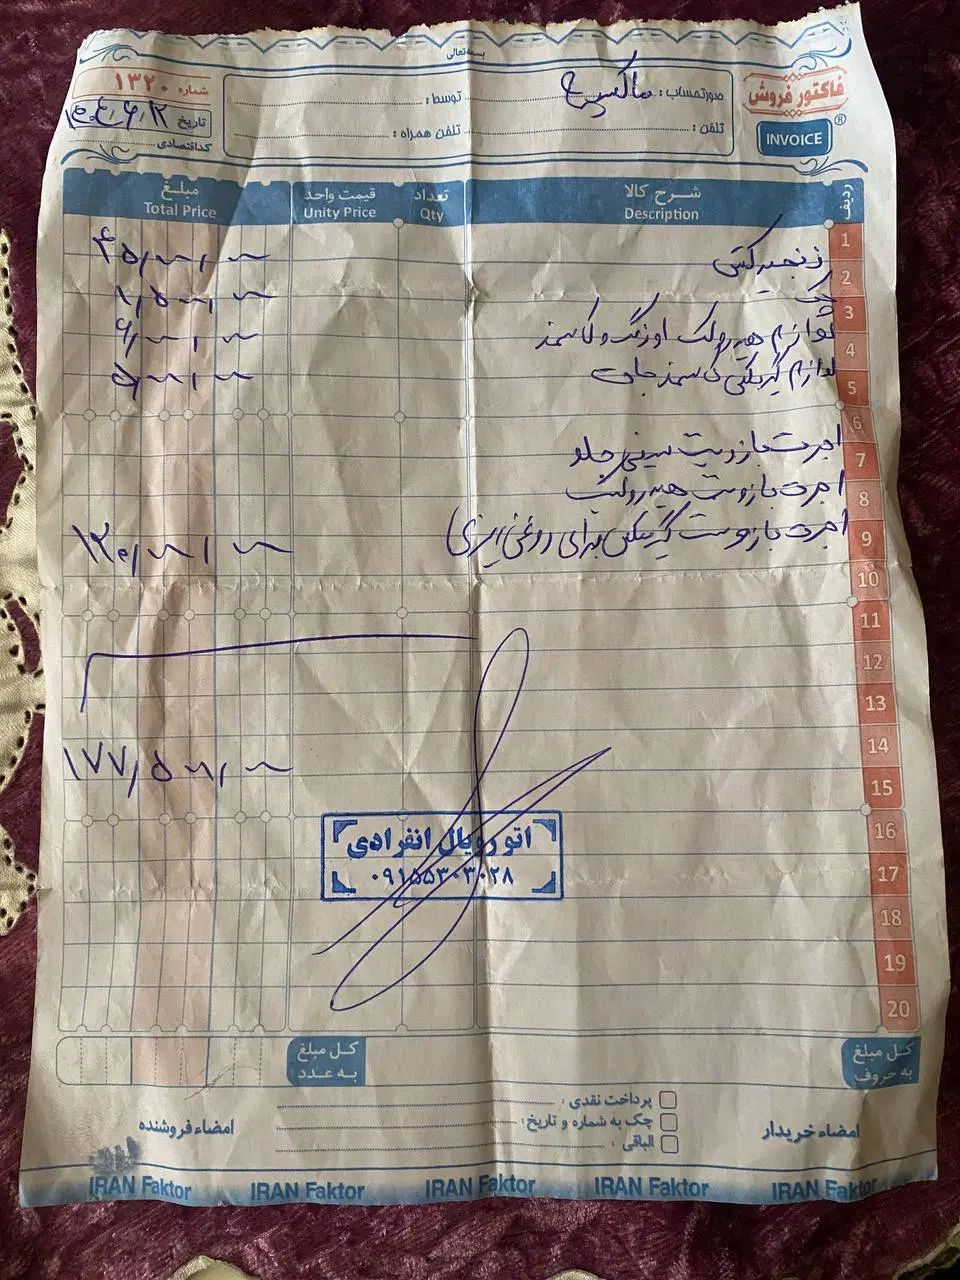 بسمه تعالی
فاکتور فروش
INVOICE
®
صورتحساب :
توسط :
تلفن :
تلفن همراه :
شماره ۱۳۲۰
تاریخ ۱۴۰۴/۶/۱۲
کد اقتصادی
ردیف شرح کالا تعداد قیمت واحد مبلغ
Description Qty Unity Price Total Price
1 زنجیر کشی ۴۵/۰۰۰/۰۰۰
2 ۱/۵۰۰/۰۰۰
3 لوازم هیدرولیک اورینگ و کاسمند ۶/۰۰۰/۰۰۰
4 لوازم گیربکس کاسمند جلو ۵/۰۰۰/۰۰۰
5
6 اجرت بازوبست سینی جلو
7 اجرت بازوبست هیدرولیک
8 اجرت بازوبست گیربکس برای روغن ریزی ۱۲۰/۰۰۰/۰۰۰
9
10
11
12
13
14 ۱۷۷/۵۰۰/۰۰۰
15
16
17
18
19
20
اتو رویال انفرادی
۰۹۱۵۵۳۰۳۰۲۸
کل مبلغ به حروف
کل مبلغ به عدد
پرداخت نقدی :
چک به شماره و تاریخ :
الباقی :
امضاء خریدار
امضاء فروشنده
IRAN Faktor IRAN Faktor IRAN Faktor IRAN Faktor IRAN Faktor